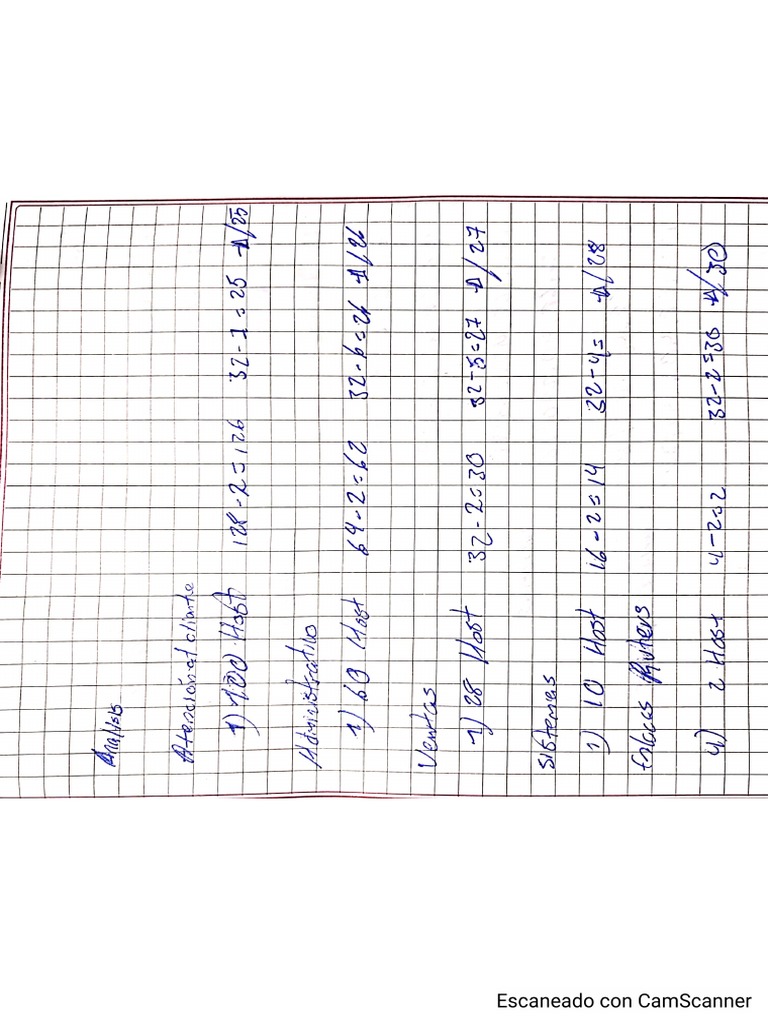 Analisis
Atencion al cliente
1) 100 Host 128-2=126 32-7=25 → /25
Administrativo
1) 60 Host 64-2=62 32-6=26 → /26
Ventas
1) 28 Host 32-2=30 32-5=27 → /27
Sistemas
1) 10 Host 16-2=14 32-4= → /28
Enlaces Ruters
4) 2 Host 4-2=2 32-2=30 → /30
Escaneado con CamScanner